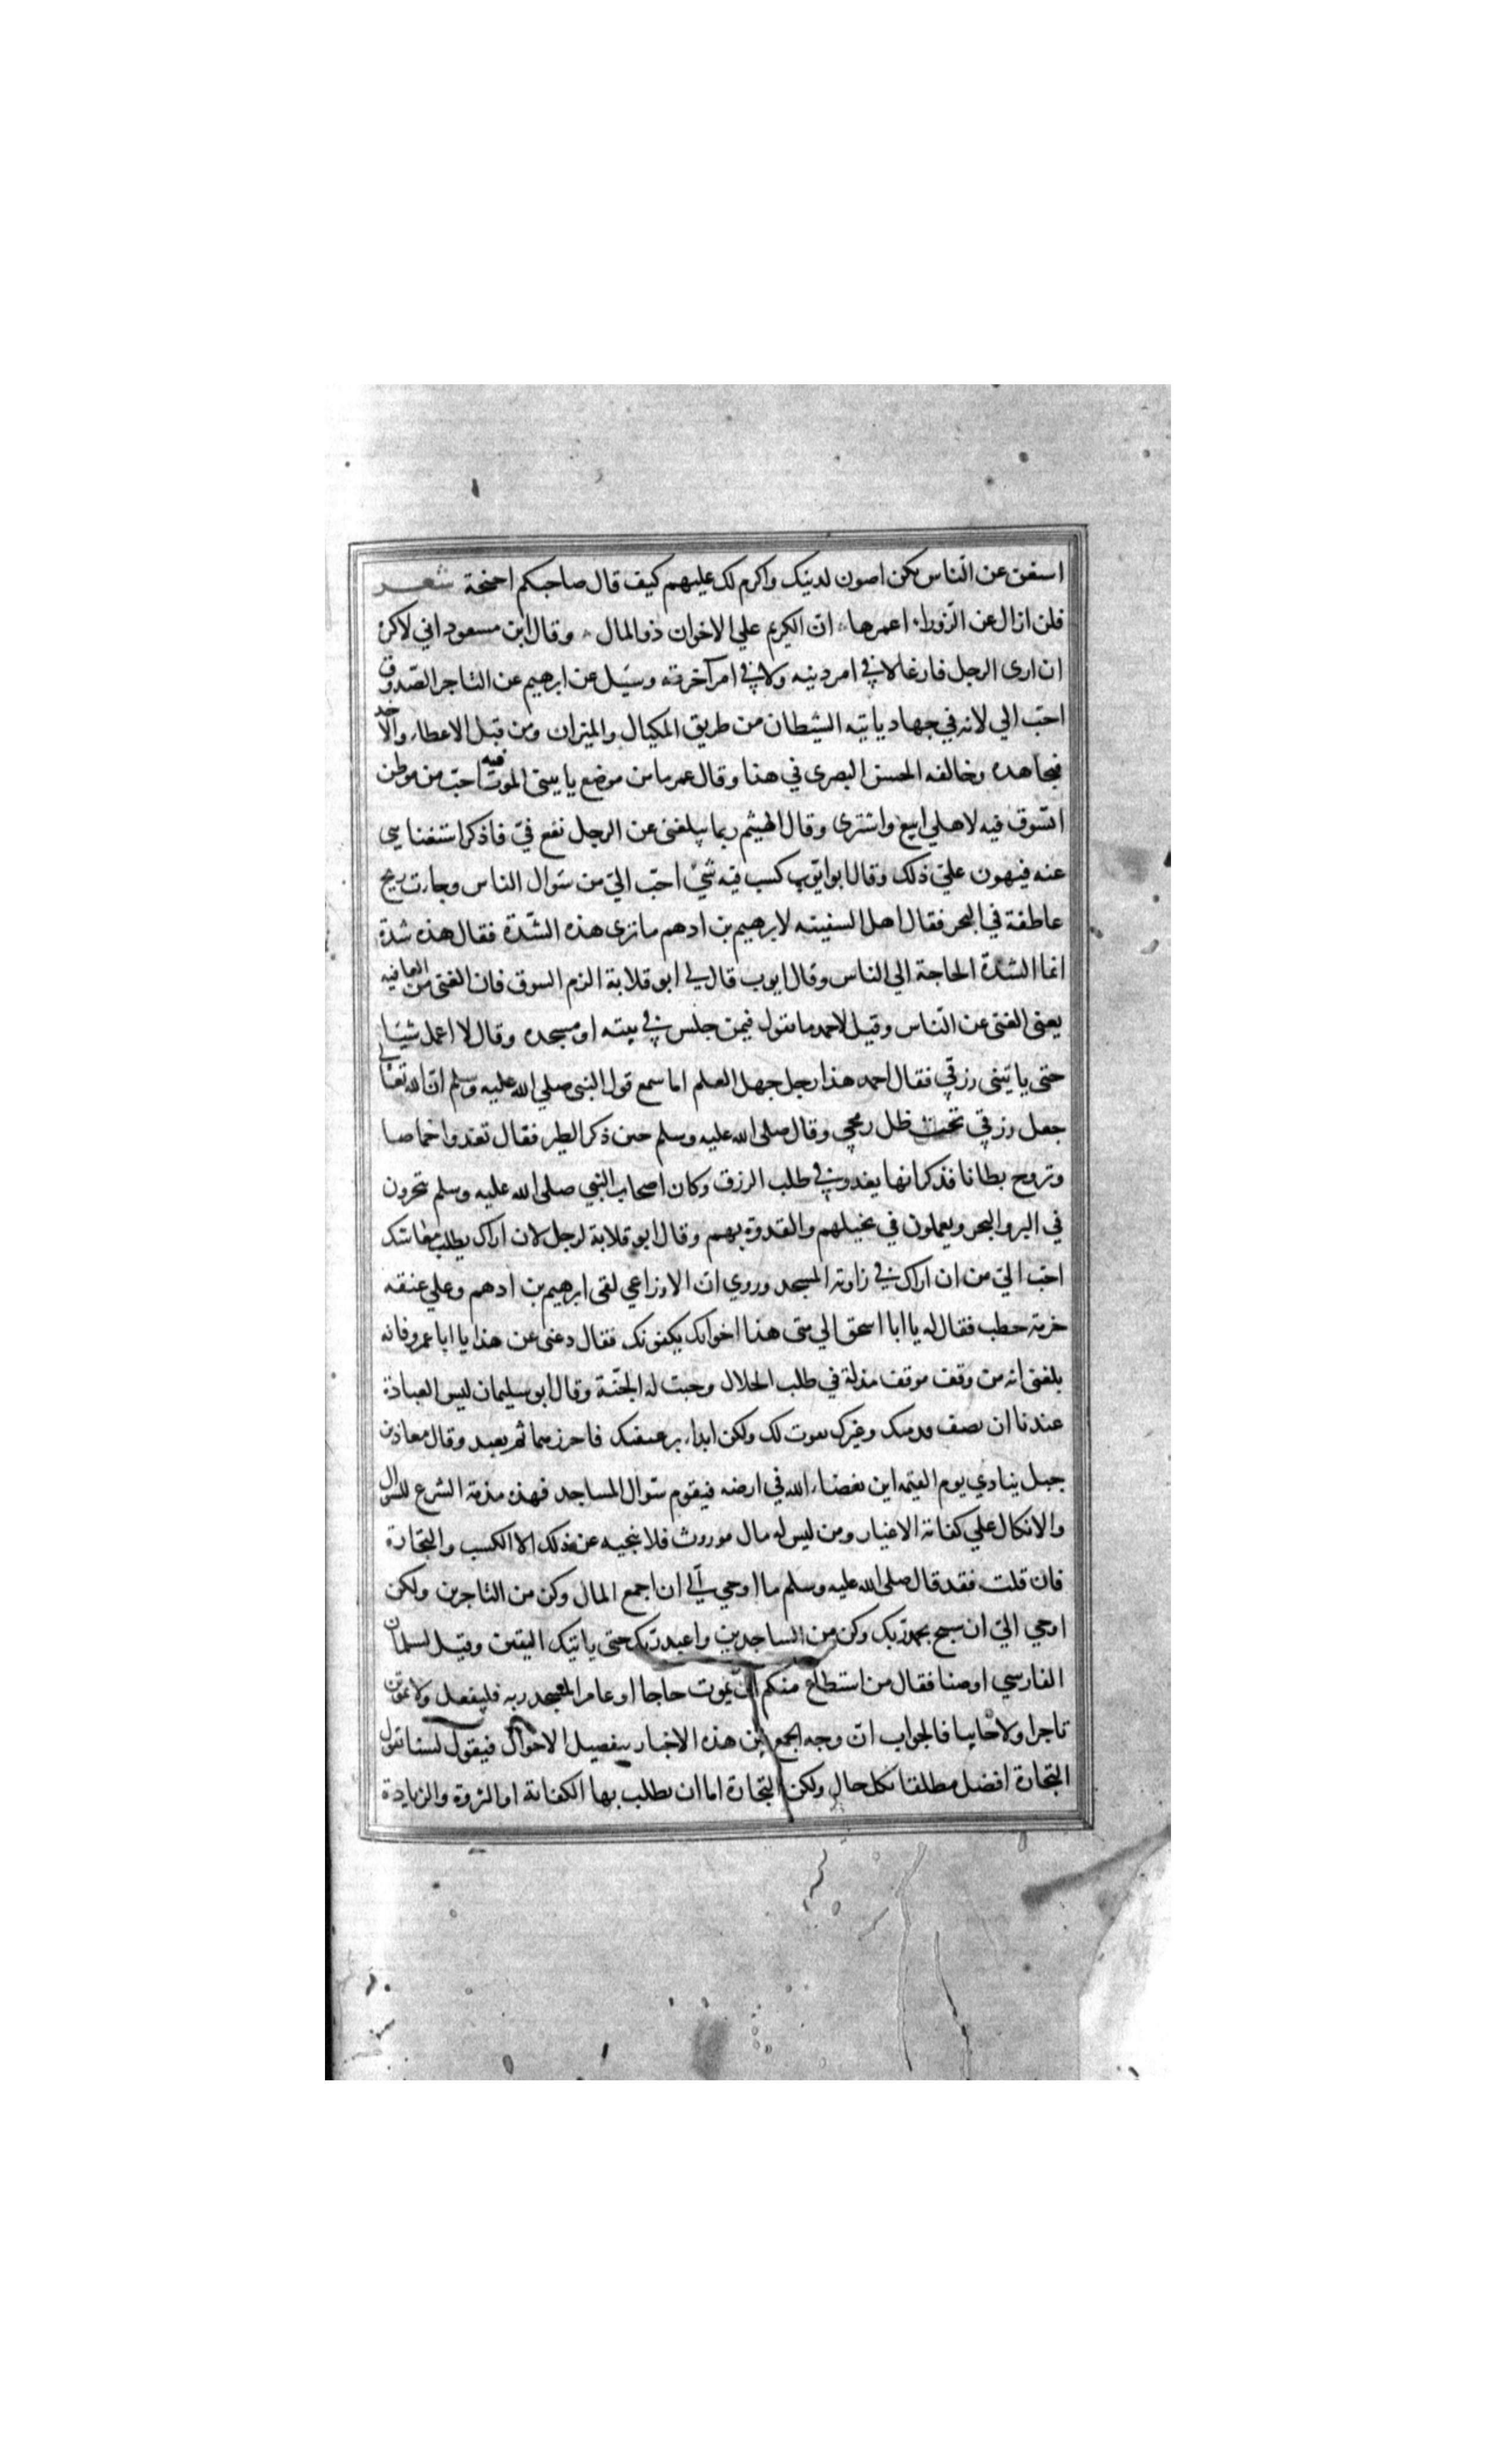 استغن عن النّاس يكن اصون لدينك واكرم لك عليهم كيف قال صاحبكم احنحة شعر
فلن ازال عن الزّوراء اعمرها ان الكريم علي الاخوان ذو المال وقال ابن مسعود اني لاكره
ان ارى الرجل فارغا لا في امر دينه ولا في امر آخرته وسئل عن ابرهيم عن التاجر الصّدوق
احبّ الي لانه في جهاد ياتيه الشيطان من طريق المكيال والميزان ومن قبل الاعطاء والاخذ
فيجاهده وخالفه الحسن البصرى في هذا وقال عمر ما من موضع ياتيني الموت فيه احبّ من موطن
اتسّوق فيه لاهلي ابيع واشترى وقال الهيثم ربما يبلغنى عن الرجل نفع فيّ فاذكر استغنايى
عنه فيهون عليّ ذلك وقال ابو ايّوب كسب فيه شيء احبّ اليّ من سوال الناس وجاءت ريح
عاطفة في البحر فقال اهل السفينه لابرهيم بن ادهم ما ترى هذه الشّدة فقال هذه شدة
انما الشدّة الحاجة الي الناس وقال ايوب قال لي ابو قلابة الزم السوق فان الغنى من العافيه
يعنى الغنى عن النّاس وقيل لاحمد ما تقول فيمن جلس في بيته او مسجده وقال لا اعمل شيئا
حتى ياتينى رزقي فقال احمد هذا رجل جهل العلم اما سمع قول النبى صلي الله عليه وسلم انّ الله تعالى
جعل رزقي تحت ظل رمحي وقال صلى الله عليه وسلم حين ذكر الطير فقال تغدوا خماصا
وتروح بطانا فذكر انها يغدو في طلب الرزق وكان اصحاب النبي صلى الله عليه وسلم يتجرون
في البر والبحر ويعملون في نخيلهم والقدوة بهم وقال ابو قلابة لرجل لان اراك يطلب معاشك
احبّ اليّ من ان اراك في زاوية المسجد وروي ان الاوزاعي لقى ابرهيم بن ادهم وعلي عنقه
حزمة حطب فقال له يا ابا اسحق الي متى هذا اخوانك يكفونك فقال دعنى عن هذا يا ابا عمرو فانه
بلغنى انه من وقف موقف مذلة في طلب الحلال وجبت له الجنّة وقال ابو سليمان ليس العبادة
عندنا ان تصف قدميك وغيرك يموت لك ولكن ابداء برغيفيك فاحرزهما ثم يعبد وقال معاذ بن
جبل ينادي يوم القيمه اين بغضاء الله في ارضه فيقوم سوّال المساجد فهذه مذمة الشرع للسوال
والاتكال علي كفاية الاغيار ومن ليس له مال موروث فلا ينجيه عن ذلك الا الكسب والتجارة
فان قلت فقد قال صلى الله عليه وسلم ما اوحي اليّ ان اجمع المال وكن من التاجرين ولكن
اوحي اليّ ان سبح بحمد ربك وكن من الساجدين واعبد ربك حتى ياتيك اليقين وقيل لسلمان
الفارسي اوصنا فقال من استطاع منكم ان يموت حاجا او عامرا لمسجد ربه فليفعل ولا يموتن
تاجرا ولا خايبا فالجواب انّ وجه الجمع بين هذه الاخبار بتفصيل الاحوال فيقول لسنا نقول
التجارة افضل مطلقا بكل حال ولكن التجارة اما ان يطلب بها الكفاية او الثروة والزيادة